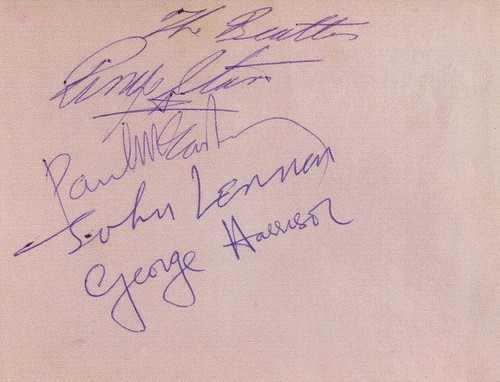 The Beatles
Ringo Starr
Paul McCartney
John Lennon
George Harrison